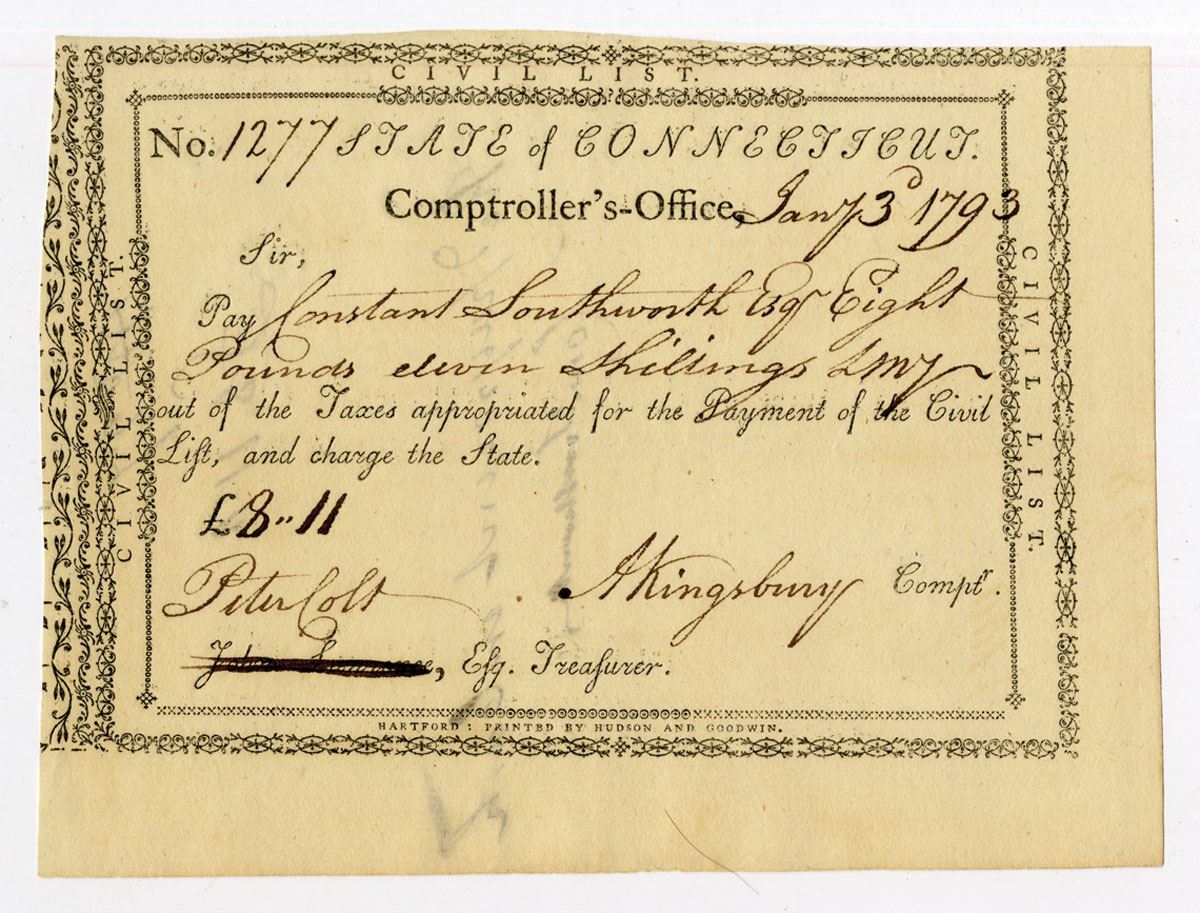 CIVIL LIST.
No. 1277 STATE of CONNECTICUT.
Comptroller's-Office, Jany 3d 1793
Sir,
Pay Constant Southworth Esqr Eight
Pounds eleven Shillings LMy
out of the Taxes appropriated for the Payment of the Civil
Liſt, and charge the State.
£ 8 " 11
Peter Colt
AKingsbury Comptr.
John Lawrence, Eſq. Treaſurer.
HARTFORD: PRINTED BY HUDSON AND GOODWIN.
CIVIL LIST.
CIVIL LIST.